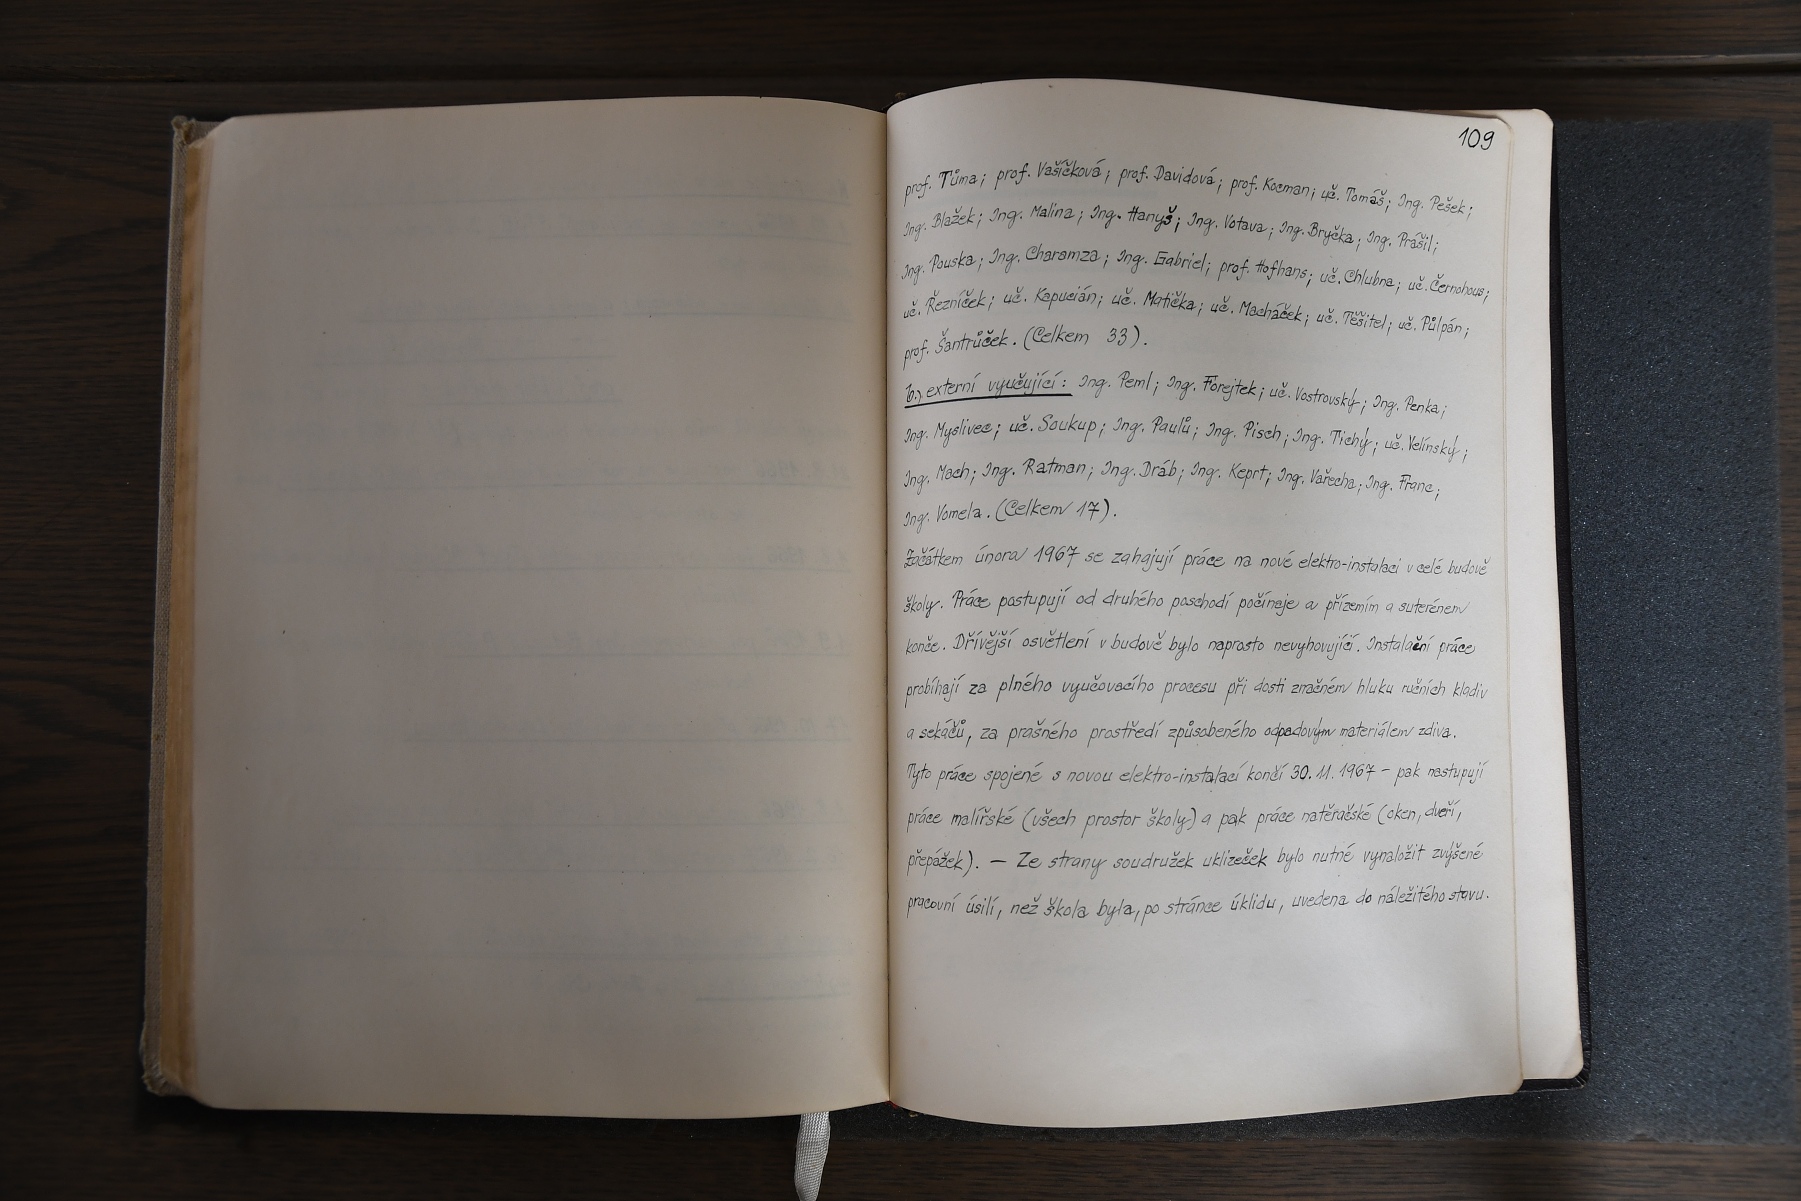 109
prof. Tůma; prof. Vašíčková; prof. Davidová; prof. Kocman; uč. Tomáš; Ing. Pešek;
Ing. Blažek; Ing. Malina; Ing. Hanyš; Ing. Votava; Ing. Bryčka; Ing. Prášil;
Ing. Pouska; Ing. Charamza; Ing. Gabriel; prof. Hofhans; uč. Chlubna; uč. Černohous;
uč. Řezníček; uč. Kapucián; uč. Matička; uč. Macháček; uč. Těšitel; uč. Půlpán;
prof. Šantrůček. (Celkem 33).
b., externí vyučující: Ing. Peml; Ing. Forejtek; uč. Vostrovský; Ing. Penka;
Ing. Myslivec; uč. Soukup; Ing. Paulů; Ing. Pisch; Ing. Tichý; uč. Velínský;
Ing. Mach; Ing. Ratman; Ing. Dráb; Ing. Keprt; Ing. Vařecha; Ing. Franc;
Ing. Vomela. (Celkem 17).
Začátkem února 1967 se zahajují práce na nové elektro-instalaci v celé budově
školy. Práce postupují od druhého poschodí počínaje a přízemím a suterénem
konče. Dřívější osvětlení v budově bylo naprosto nevyhovující. Instalační práce
probíhají za plného vyučovacího procesu při dosti značném hluku ručních kladiv
a sekáčů, za prašného prostředí způsobeného odpadovým materiálem zdiva.
Tyto práce spojené s novou elektro-instalací končí 30. 11. 1967 - pak nastupují
práce malířské (všech prostor školy) a pak práce natěračské (oken, dveří,
přepážek). — Ze strany soudružek uklizeček bylo nutné vynaložit zvýšené
pracovní úsilí, než škola byla, po stránce úklidu, uvedena do náležitého stavu.